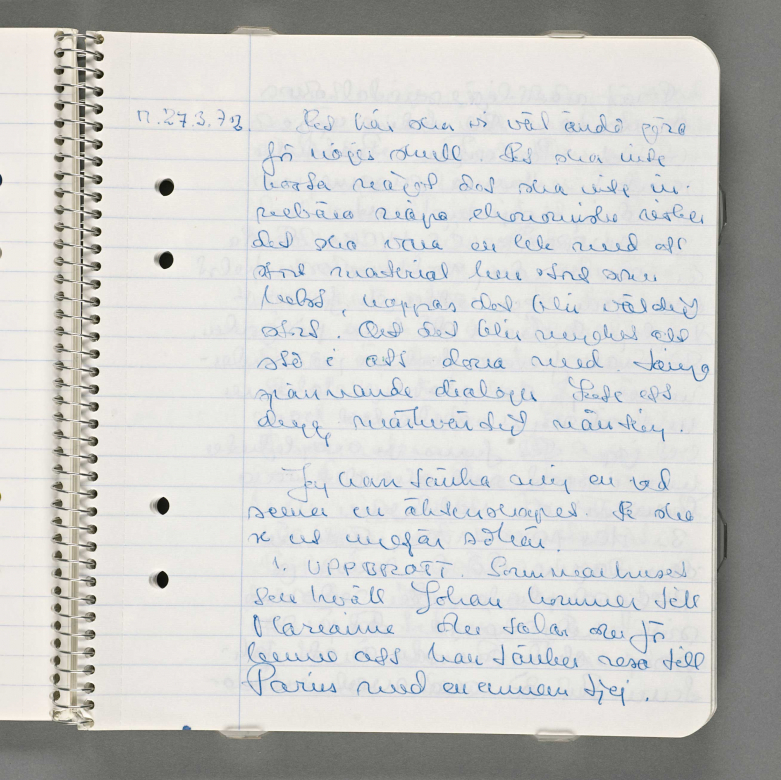 n. 27.3.72. Det här ska vi väl ändå göra
för nöjes skull. Det ska inte
kosta något det ska inte in-
nebära några ekonomiska risker
det ska vara en lek med ett
stort material hur stort som
helst, hoppas det blir väldigt
stort. Och det blir mycket att
stå i att dona med. Långa
spännande dialoger
märkvärdig
Jag kan tänka mig en rad
scener en äktenskapet. De ska
se ut ungefär såhär.
1. UPPBROTT. Sommarhuset
sen kväll Johan kommer till
Marianne och talar om för
henne att han tänker resa till
Paris med en annan tjej.